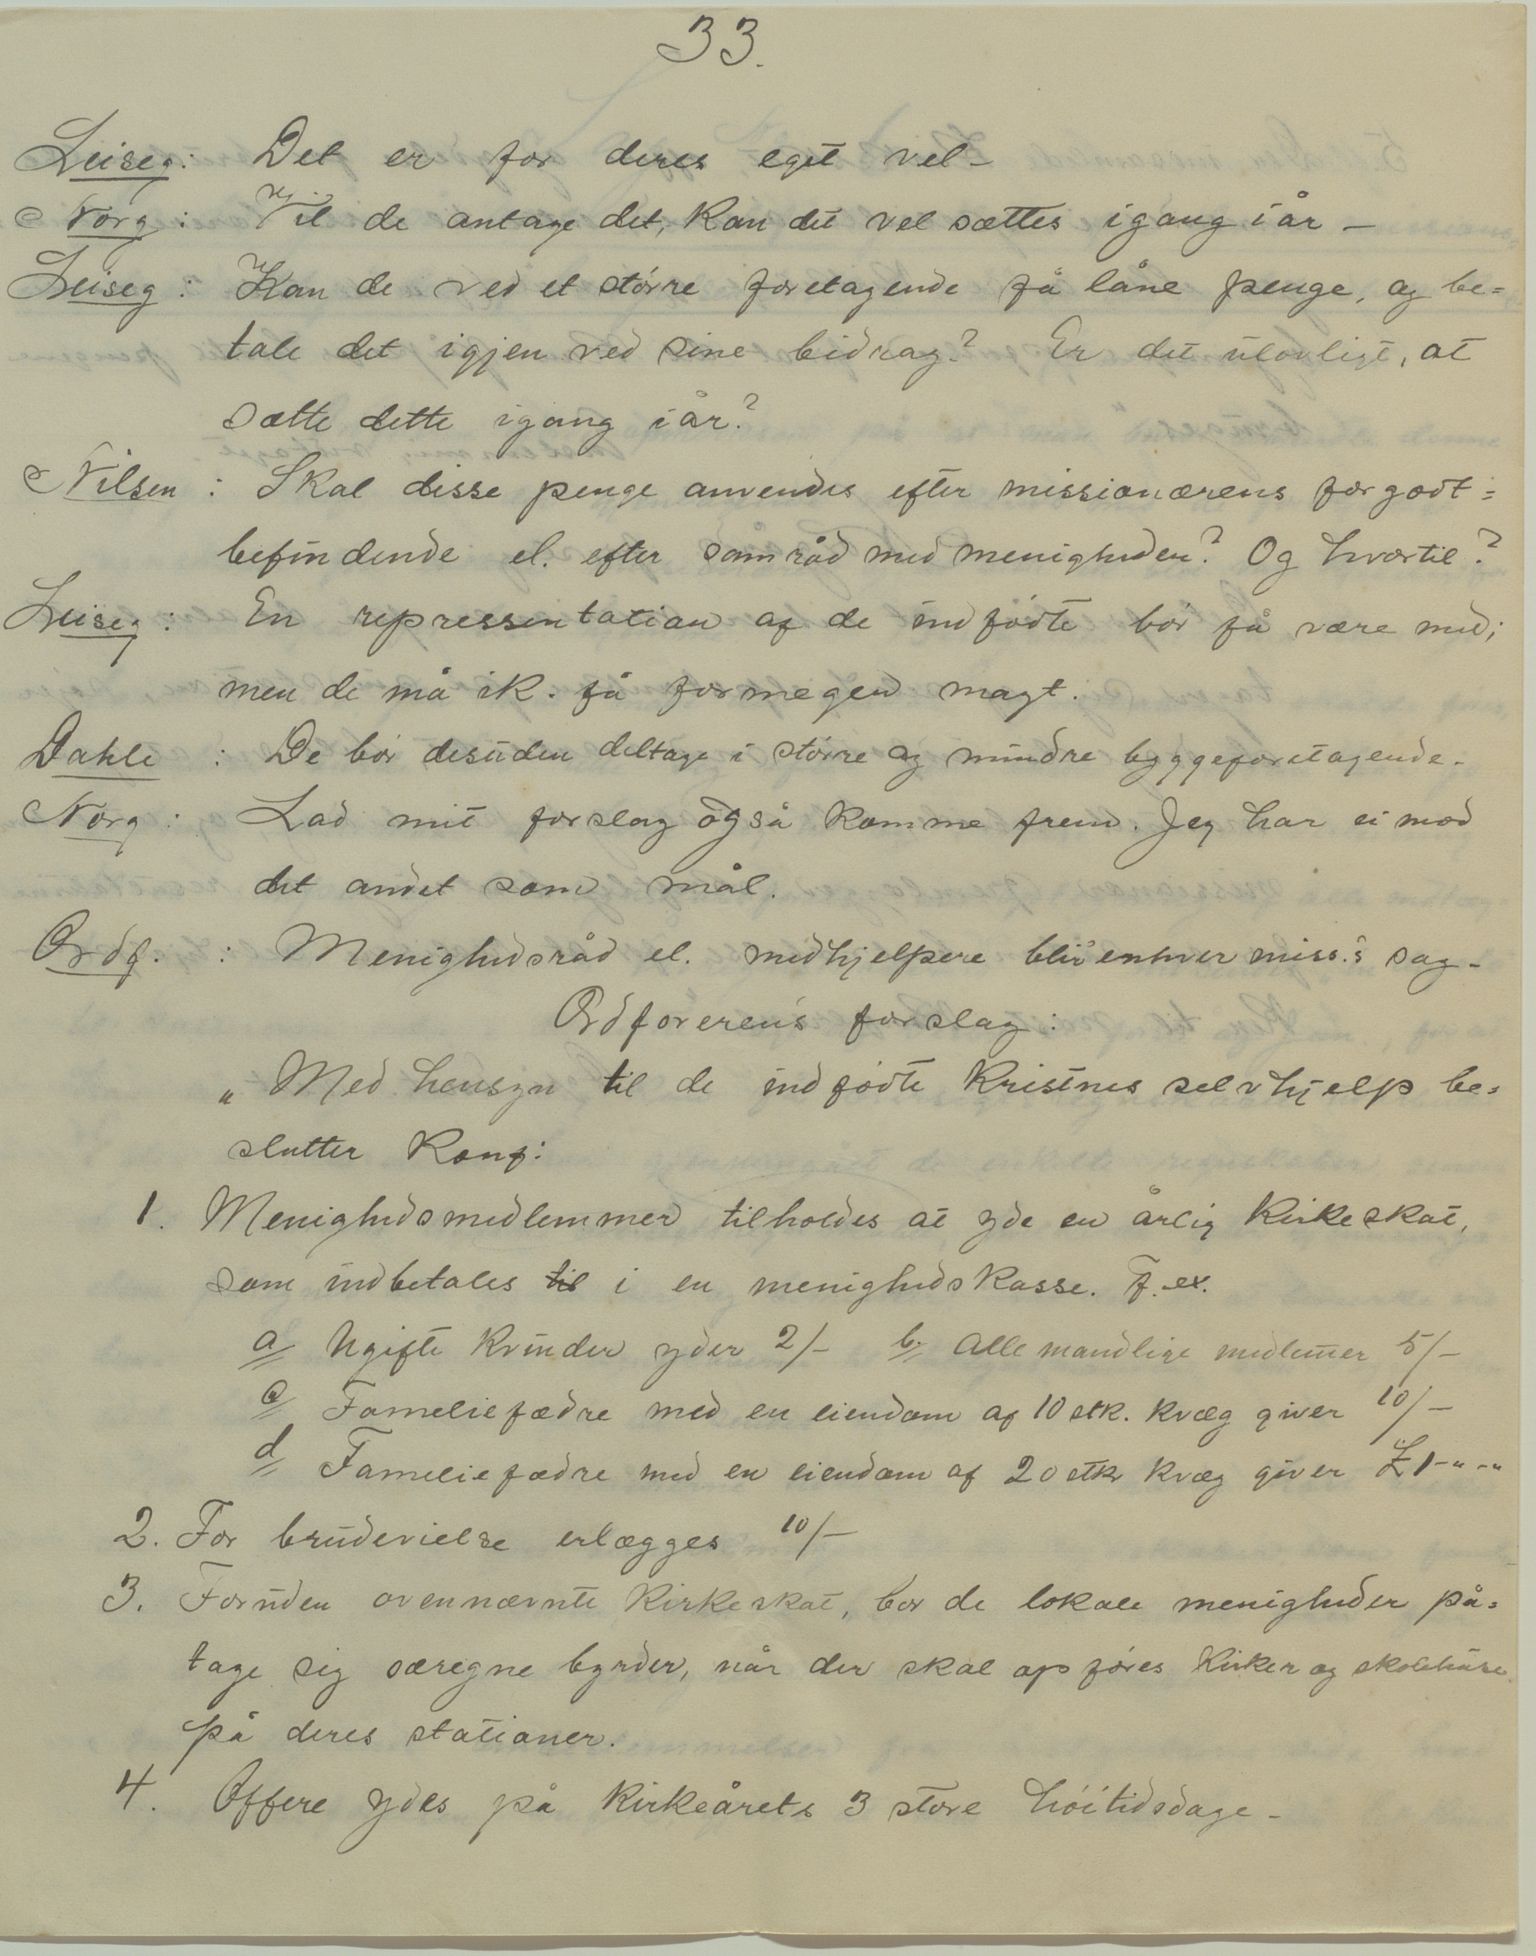 33.
Leiseg: Det er for deres eget vel-
Norg: Vil de antage det, kan det vel sættes igang i år -
Leiseg: Kan de ved et større foretagende få låne penge, og be=
tale det igjen ved sine bidrag? Er det ulovligt, at
sætte dette igang i år?
Nilsen: Skal disse penge anvendes efter missionærens forgodt=
befindende el. efter samråd med menigheden? Og hvortil?
Leiseg: En repressentation af de indfødte bør få være med;
men de må ik. få formegen magt.
Dahle: De bør desuden deltage i større og mindre byggeforetagende.
Norg: Lad mit forslag også komme frem. Jeg har ei mod
det andet som mål.
Ordf.: Menighedsråd el. medhjelpere blir enhver miss.'s sag-
Ordførerens forslag:
„Med hensyn til de indfødte kristnes selvhjelp be=
slutter Konf:
1. Menighedsmedlemmer tilholdes at yde en årlig kirkeskat,
som indbetales til i en menighedskasse. F. ex.
a/ Ugifte kvinder yder 2/- b/ Alle mandlige medlemer 5/-
c/ Fameliefædre med en eiendom af 10 stk. kvæg giver 10/-
d/ Fameliefædre med en eiendom af 20 stkr kvæg giver £1-"-"
2. For brudevielse erlægges 10/-
3. Foruden ovennævnte kirkeskat, bør de lokale menigheder på=
tage sig særegne byrder, når der skal opføres kirker og skolehuse
på deres stationer.
4. Offere ydes på kirkeårets 3 store høitidsdage-